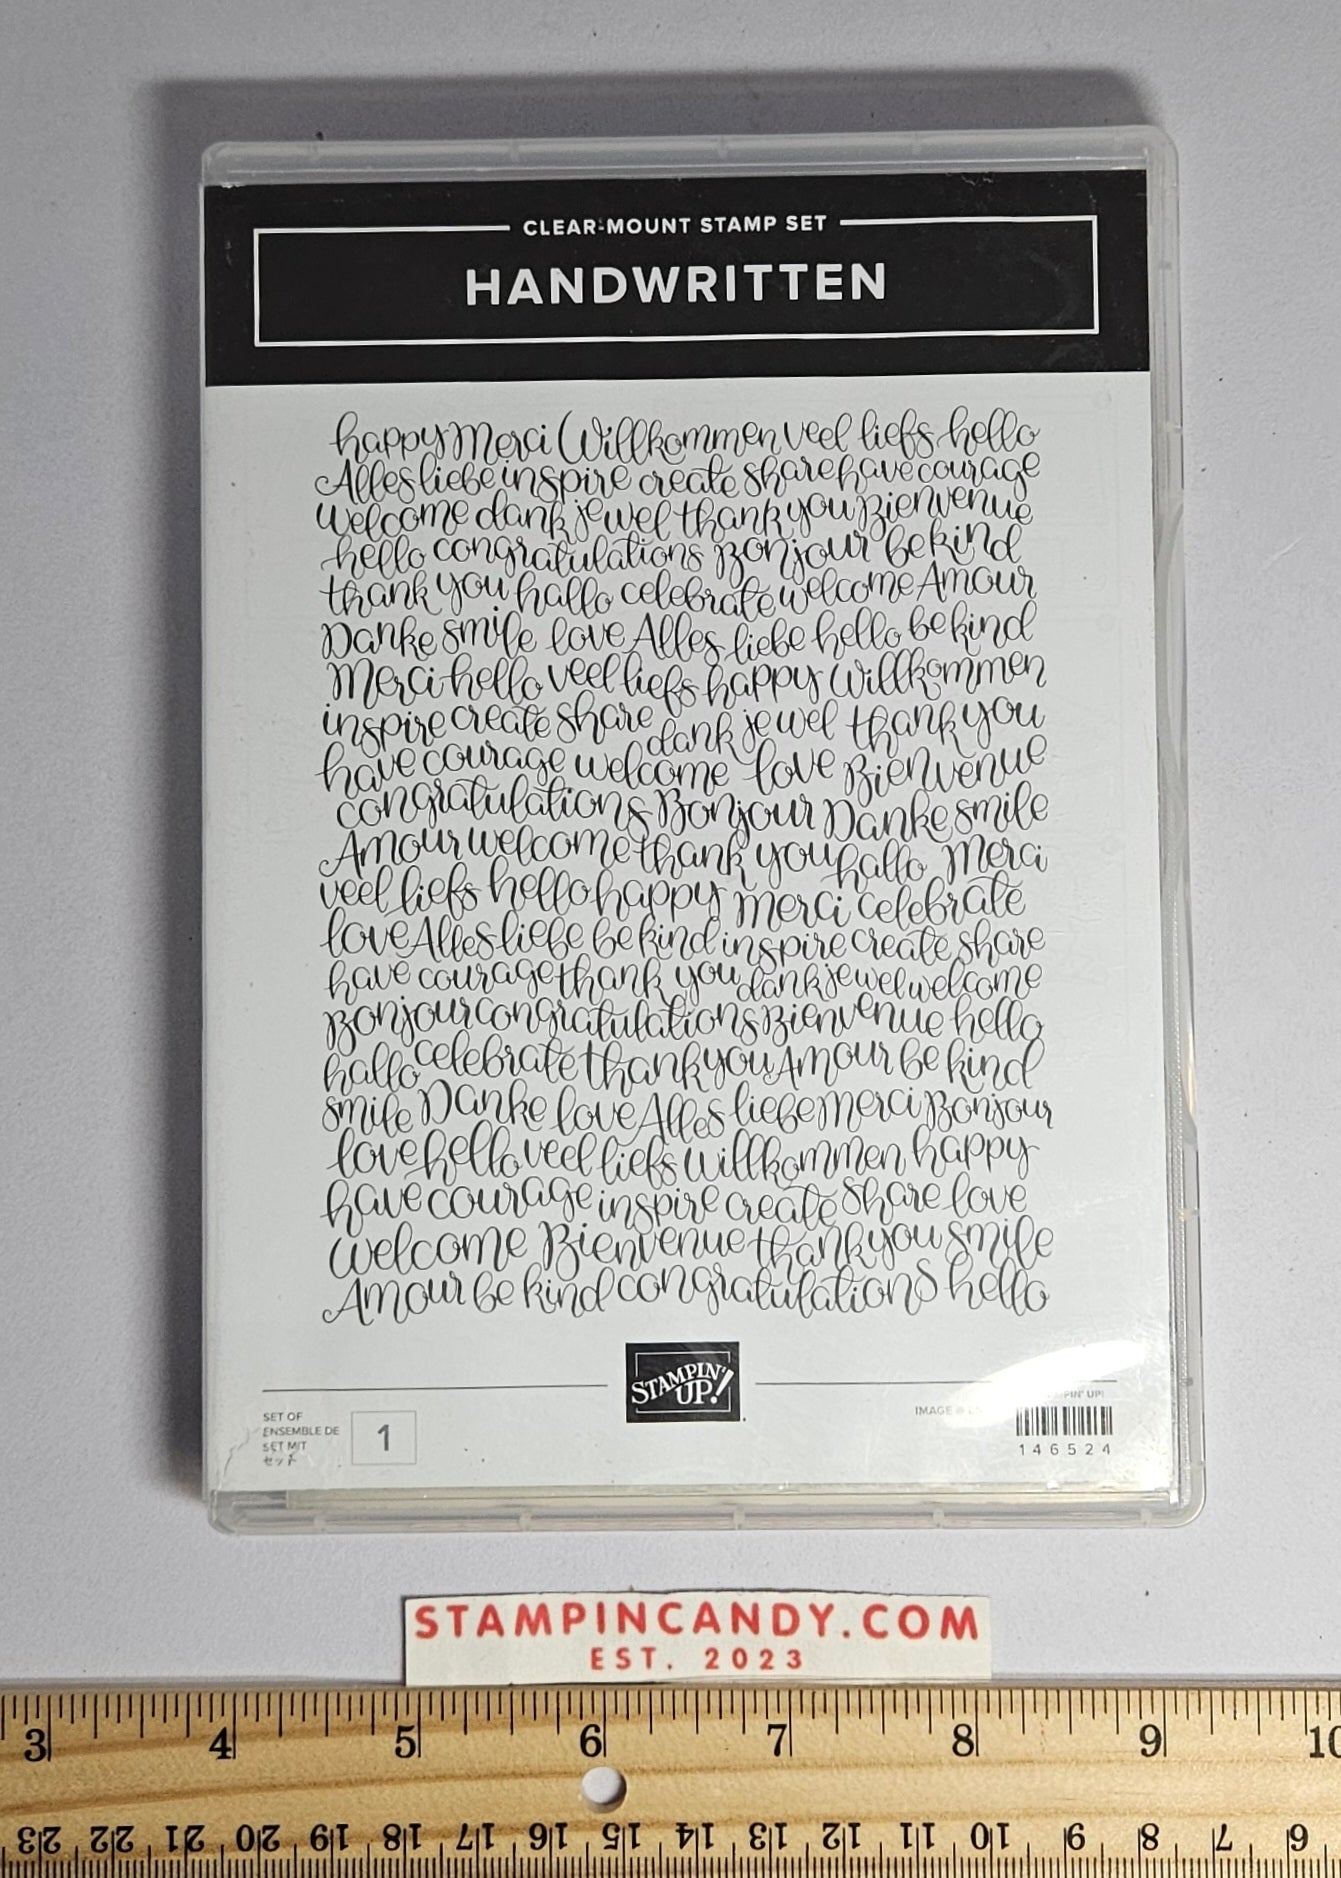 CLEAR-MOUNT STAMP SET
HANDWRITTEN
happy Merci Willkommen veel liefs hello
Alles liebe inspire create share have courage
welcome dank je wel thank you Bienvenue
hello congratulations Bonjour be kind
thank you hallo celebrate welcome Amour
Danke smile love Alles liebe hello be kind
Merci hello veel liefs happy Willkommen
inspire create share dank je wel thank you
have courage welcome love Bienvenue
congratulations Bonjour Danke smile
Amour welcome thank you hallo Merci
veel liefs hello happy Merci celebrate
love Alles liebe be kind inspire create share
have courage thank you dank je wel welcome
Bonjour congratulations Bienvenue hello
hallo celebrate thank you Amour be kind
smile Danke love Alles liebe Merci Bonjour
love hello veel liefs Willkommen happy
have courage inspire create share love
welcome Bienvenue thank you smile
Amour be kind congratulations hello
STAMPIN' UP!
SET OF
ENSEMBLE DE
SET MIT
セット
1
UP!
IMAGE ©
146524
STAMPINCANDY.COM
EST. 2023
3 4 5 6 7 8 9 10
23 22 21 20 19 18 17 16 15 14 13 12 11 10 9 8 7 6